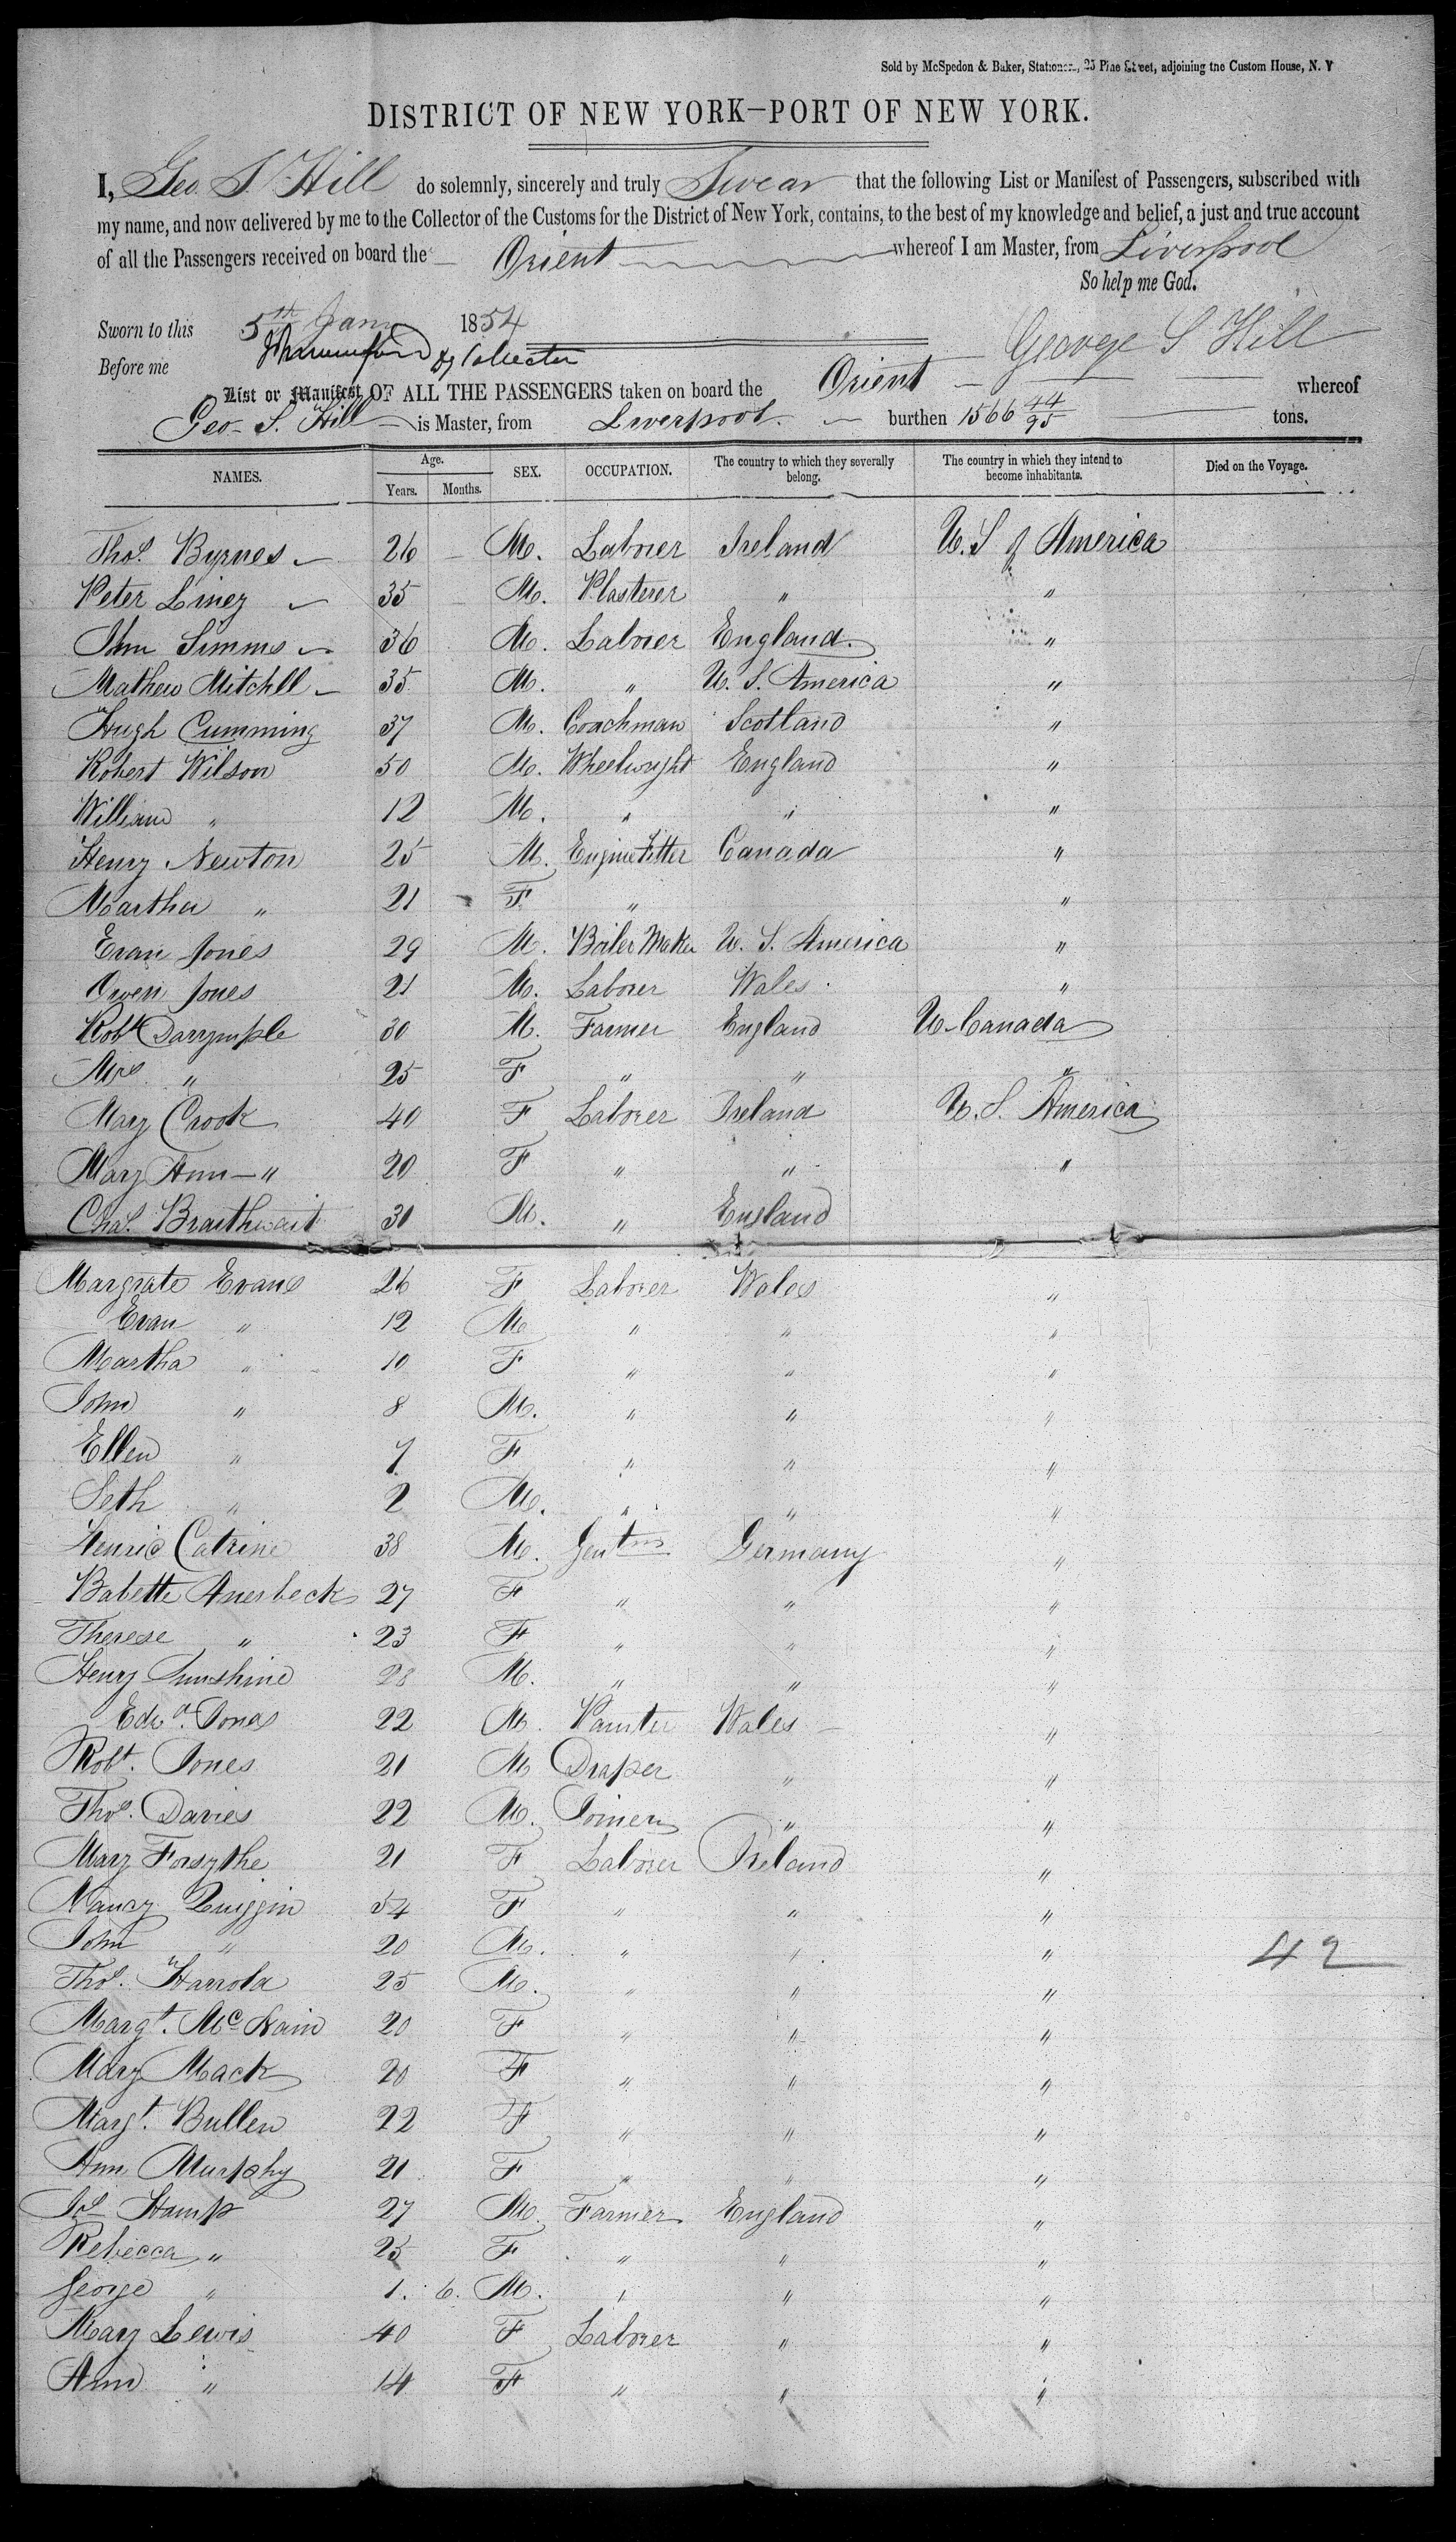 Sold by McSpedon & Baker, Stationers, 25 Pine Street, adjoining the Custom House, N. Y
DISTRICT OF NEW YORK—PORT OF NEW YORK.
I, Geo. S Hill do solemnly, sincerely and truly Swear that the following List or Manifest of Passengers, subscribed with
my name, and now delivered by me to the Collector of the Customs for the District of New York, contains, to the best of my knowledge and belief, a just and true account
of all the Passengers received on board the Orient whereof I am Master, from Liverpool
So help me God.
Sworn to this 5th Jany 1854
George S Hill
Before me Dy Collector
List or Manifest OF ALL THE PASSENGERS taken on board the Orient whereof
Geo. S. Hill is Master, from Liverpool. burthen 1566 44/95 tons.
NAMES. Age. Years. Months. SEX. OCCUPATION. The country to which they severally belong. The country in which they intend to become inhabitants. Died on the Voyage.
Thos. Byrnes 26 M. Laborer Ireland U. S of America
Peter Liney 35 M. Plasterer " "
John Simms 36 M. Laborer England. "
Mathew Mitchell 35 M. " U. S. America "
Hugh Cumming 37 M. Coachman Scotland "
Robert Wilson 50 M. Wheelwright England "
William " 12 M. " " "
Henry Newton 25 M. Engine Fitter Canada "
Martha " 21 F " "
Evan Jones 29 M. Boiler Maker U. S. America "
Owen Jones 21 M. Laborer Wales "
Robt Darrymple 30 M. Farmer England U. Canada
Mrs " 25 F " " "
Mary Crook 40 F Laborer Ireland U. S. America
Mary Ann — " 20 F " " "
Chas. Braithwait 30 M. " England
Margrate Evans 26 F Laborer Wales "
Evan " 12 M " " "
Martha " 10 F " " "
John " 8 M. " " "
Ellen " 7 F " " "
Seth " 2 M. " " "
Henric Catrine 38 M. Gentms Germany "
Babette Auerbeck 27 F " " "
Therese " 23 F " " "
Henry Sunshine 28 M. " " "
Edwd. Jones 22 M. Painter Wales "
Robt. Jones 21 M Draper " "
Thos. Davies 22 M. Joiner " "
Mary Forsythe 21 F Laborer Ireland "
Nancy Quiggin 54 F " " "
John " 20 M. " " " 42
Thos. Harrold 25 M. " " "
Margt. McNain 20 F " " "
Mary Mack 20 F " " "
Margt. Bullen 22 F " " "
Ann Murphy 21 F " " "
Jos Hamp 27 M. Farmer England "
Rebecca " 25 F " " "
George " 1. 6. M. " " "
Mary Lewis 40 F Laborer " "
Ann " 14 F " " "